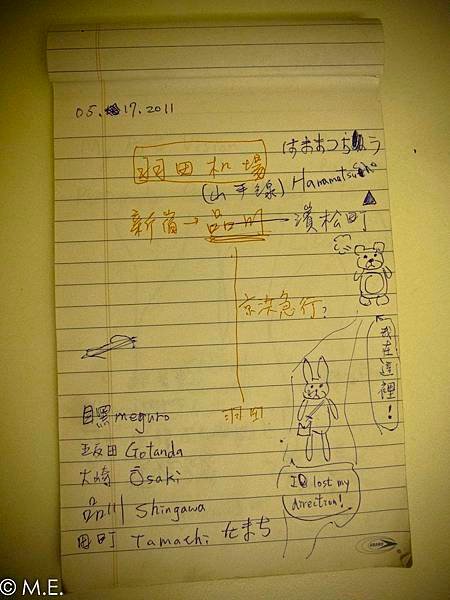 05. 17. 2011
羽田机場
はままつちょう
(山手線) Hamamatsucho
新宿→品川 濱松町
京浜急行?
羽田
我在這裡!
目黑 meguro
五反田 Gotanda
大崎 Ōsaki
品川 Shingawa
田町 Tamachi たまち
I lost my
direction!
© M.E.